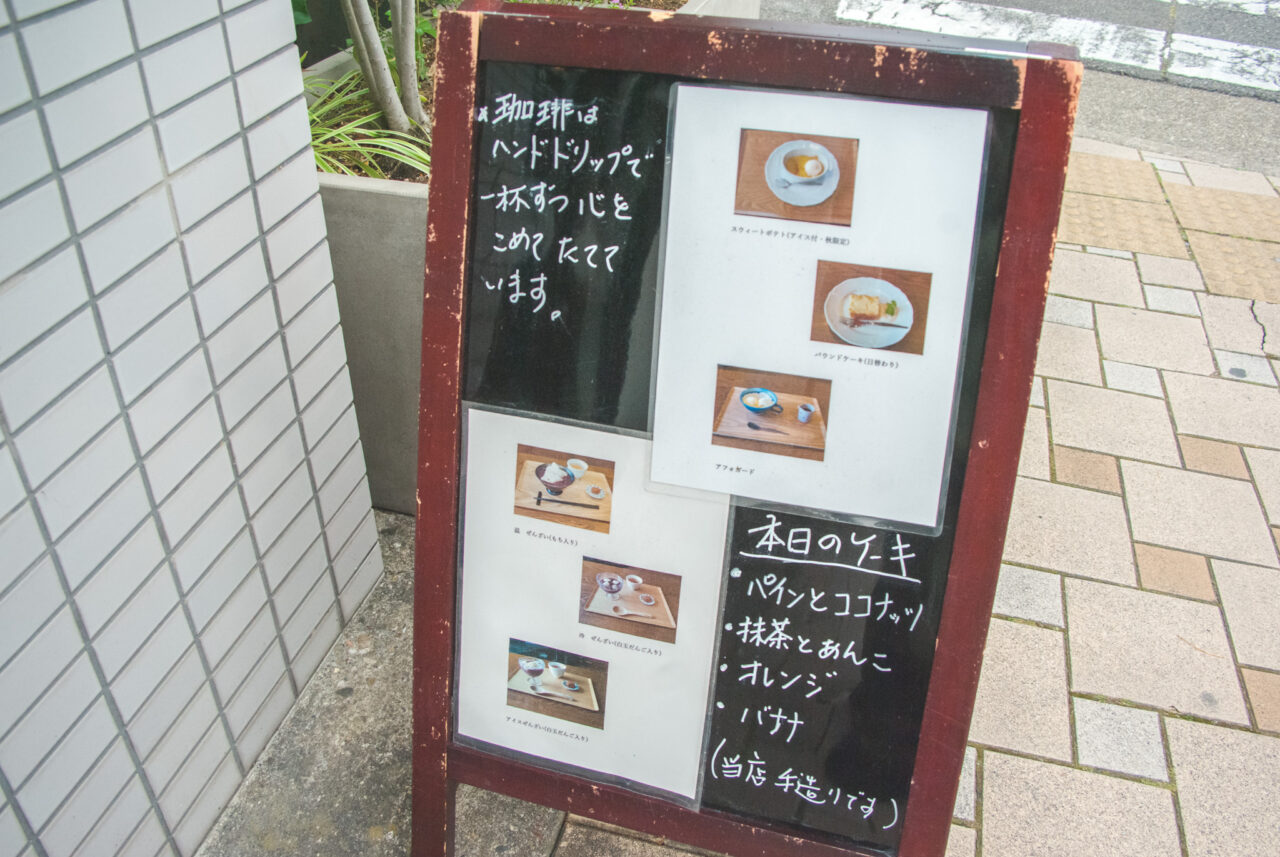 ※珈琲は
ハンドドリップで
一杯ずつ心を
こめてたてて
います。
スウィートポテト(アイス付・秋限定)
パウンドケーキ(日替わり)
アフォガード
温 ぜんざい(もち入り)
冷 ぜんざい(白玉だんご入り)
アイスぜんざい(白玉だんご入り)
本日のケーキ
・パインとココナッツ
・抹茶とあんこ
・オレンジ
・バナナ
(当店手造りです)